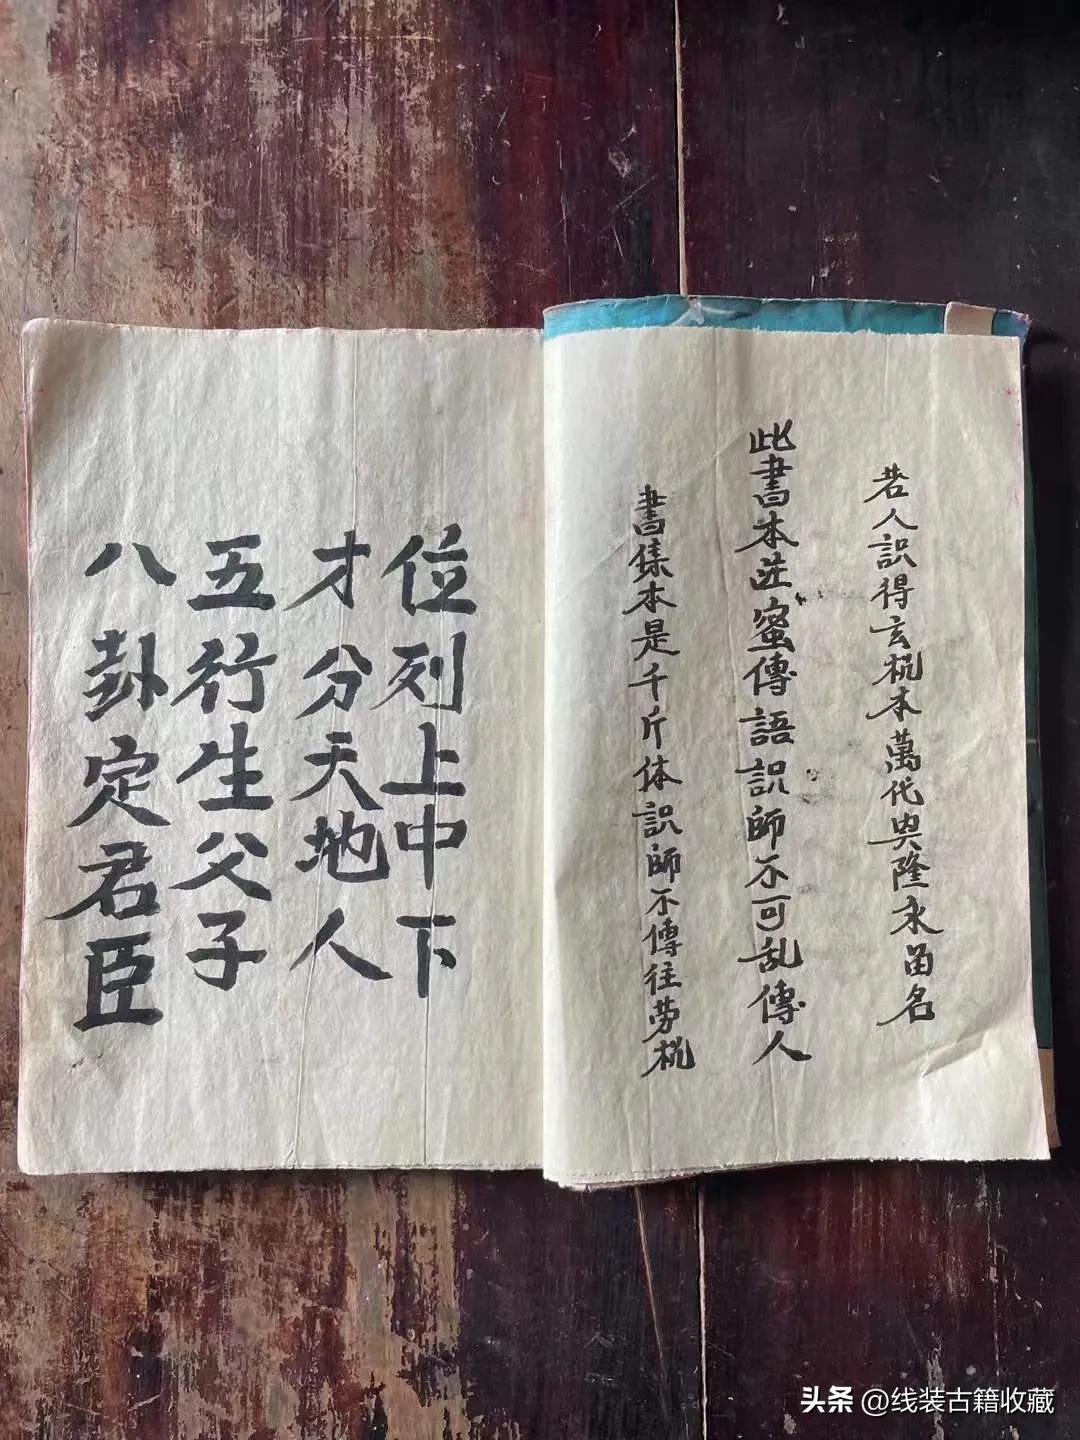 若人識得玄桄本萬代興隆永畄名
此書本是蜜傳語識師不可乱傳人
書集本是千斤体識師不傳往劳桄
位列上中下
才分天地人
五行生父子
八卦定君臣
头条 @线装古籍收藏